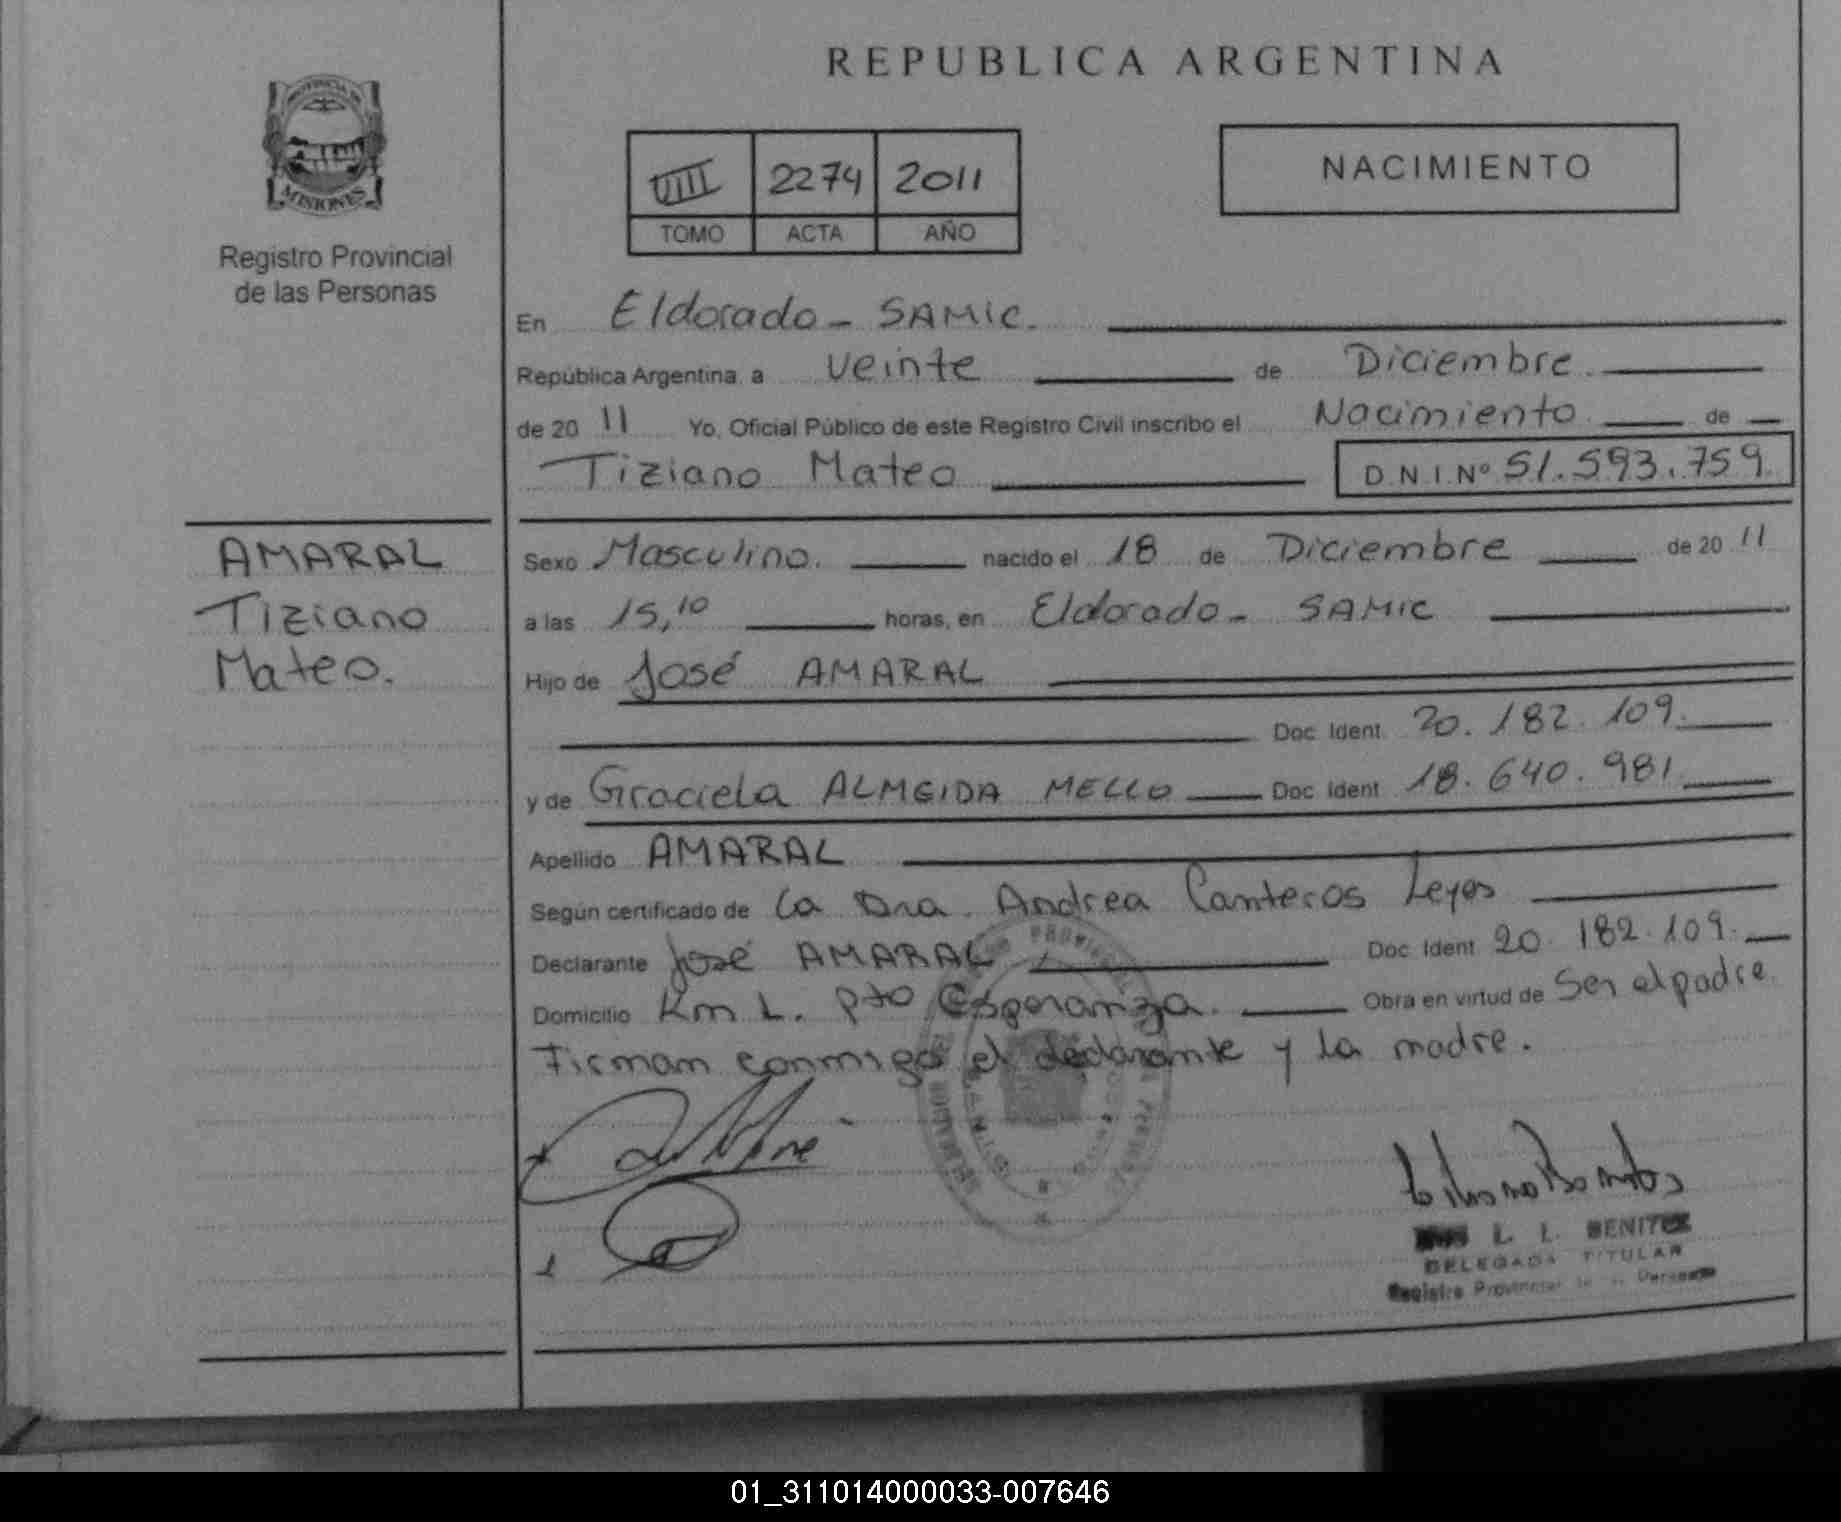 REPUBLICA ARGENTINA
PROVINCIA DE
MISIONES
Registro Provincial
de las Personas
VIII 2274 2011
TOMO ACTA AÑO
NACIMIENTO
En Eldorado - SAMIC.
República Argentina a veinte de Diciembre.
de 20 11 Yo, Oficial Público de este Registro Civil inscribo el Nacimiento de
Tiziano Mateo D.N.I.Nº 51.593.759
AMARAL
Tiziano
Mateo.
Sexo Masculino. nacido el 18 de Diciembre de 20 11
a las 15,10 horas, en Eldorado - SAMIC
Hijo de José AMARAL
Doc. Ident. 20.182.109.
y de Graciela ALMEIDA MELLO Doc. Ident. 18.640.981
Apellido AMARAL
Según certificado de La Dra. Andrea Canteros Leyes
Declarante José AMARAL Doc. Ident. 20.182.109.
Domicilio Km 1. Pto Esperanza. Obra en virtud de Ser el padre.
Firman conmigo el declarante y la madre.
L. I. BENITEZ
DELEGADA TITULAR
Registro Provincial
01_311014000033-007646